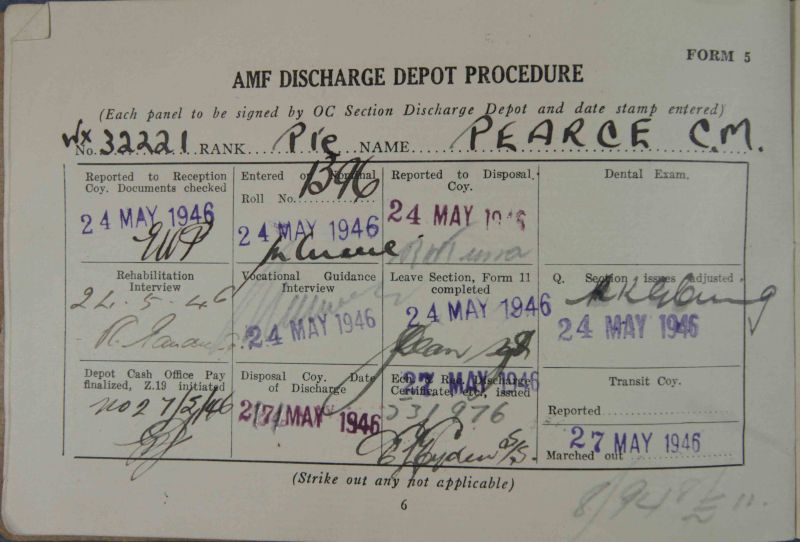 FORM 5
AMF DISCHARGE DEPOT PROCEDURE
(Each panel to be signed by OC Section Discharge Depot and date stamp entered)
WX
No. 32221 RANK Pte NAME PEARCE C.M.
Reported to Reception
Coy. Documents checked
24 MAY 1946
Entered on Nominal
Roll No. 1396
24 MAY 1946
Reported to Disposal
Coy.
24 MAY 1946
Dental Exam.
Rehabilitation
Interview
24-5-46
Vocational Guidance
Interview
24 MAY 1946
Leave Section, Form 11
completed
24 MAY 1946
Q. Section issues adjusted
24 MAY 1946
Depot Cash Office Pay
finalized, Z.19 initiated
27/5/46
Disposal Coy. Date
of Discharge
27 MAY 1946
Ech. & Rec. Discharge
Certificate, etc., issued
27 MAY 1946
531976
Transit Coy.
Reported
27 MAY 1946
Marched out
(Strike out any not applicable)
6